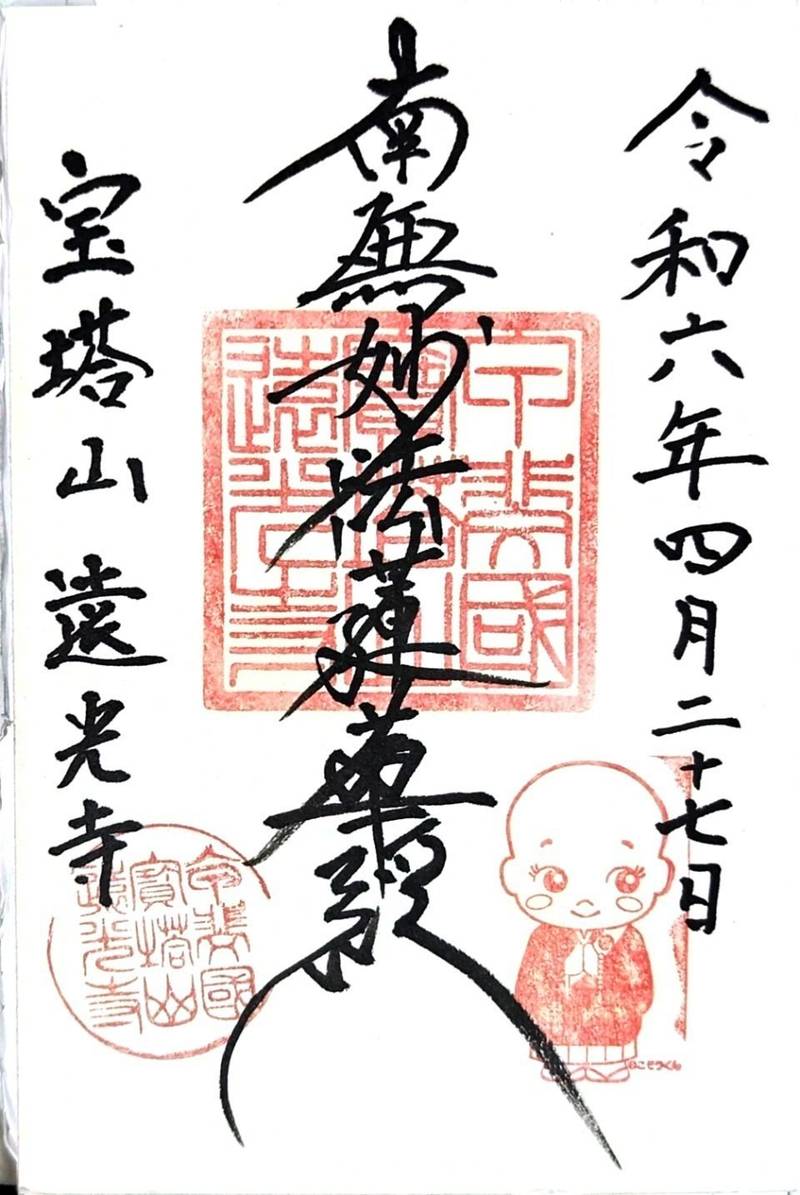 令和六年四月二十七日
南無妙法蓮華経
宝塔山 遠光寺
甲斐國
寶塔山
遠光寺
甲斐國
寶塔山
遠光寺
©こぞうくん